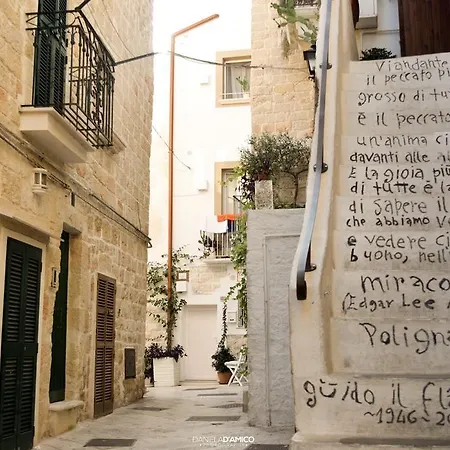 Viandante
il peccato più
grosso di tut
è il peccato
un'anima ci
davanti alle au
E la gioia più
di tutte è la
di sapere il
che abbiamo ve
e vedere ciò
buono, nell'
miraco
(Edgar Lee
Poligna
guido il fl
~1946~20
DANIELAD'AMICO